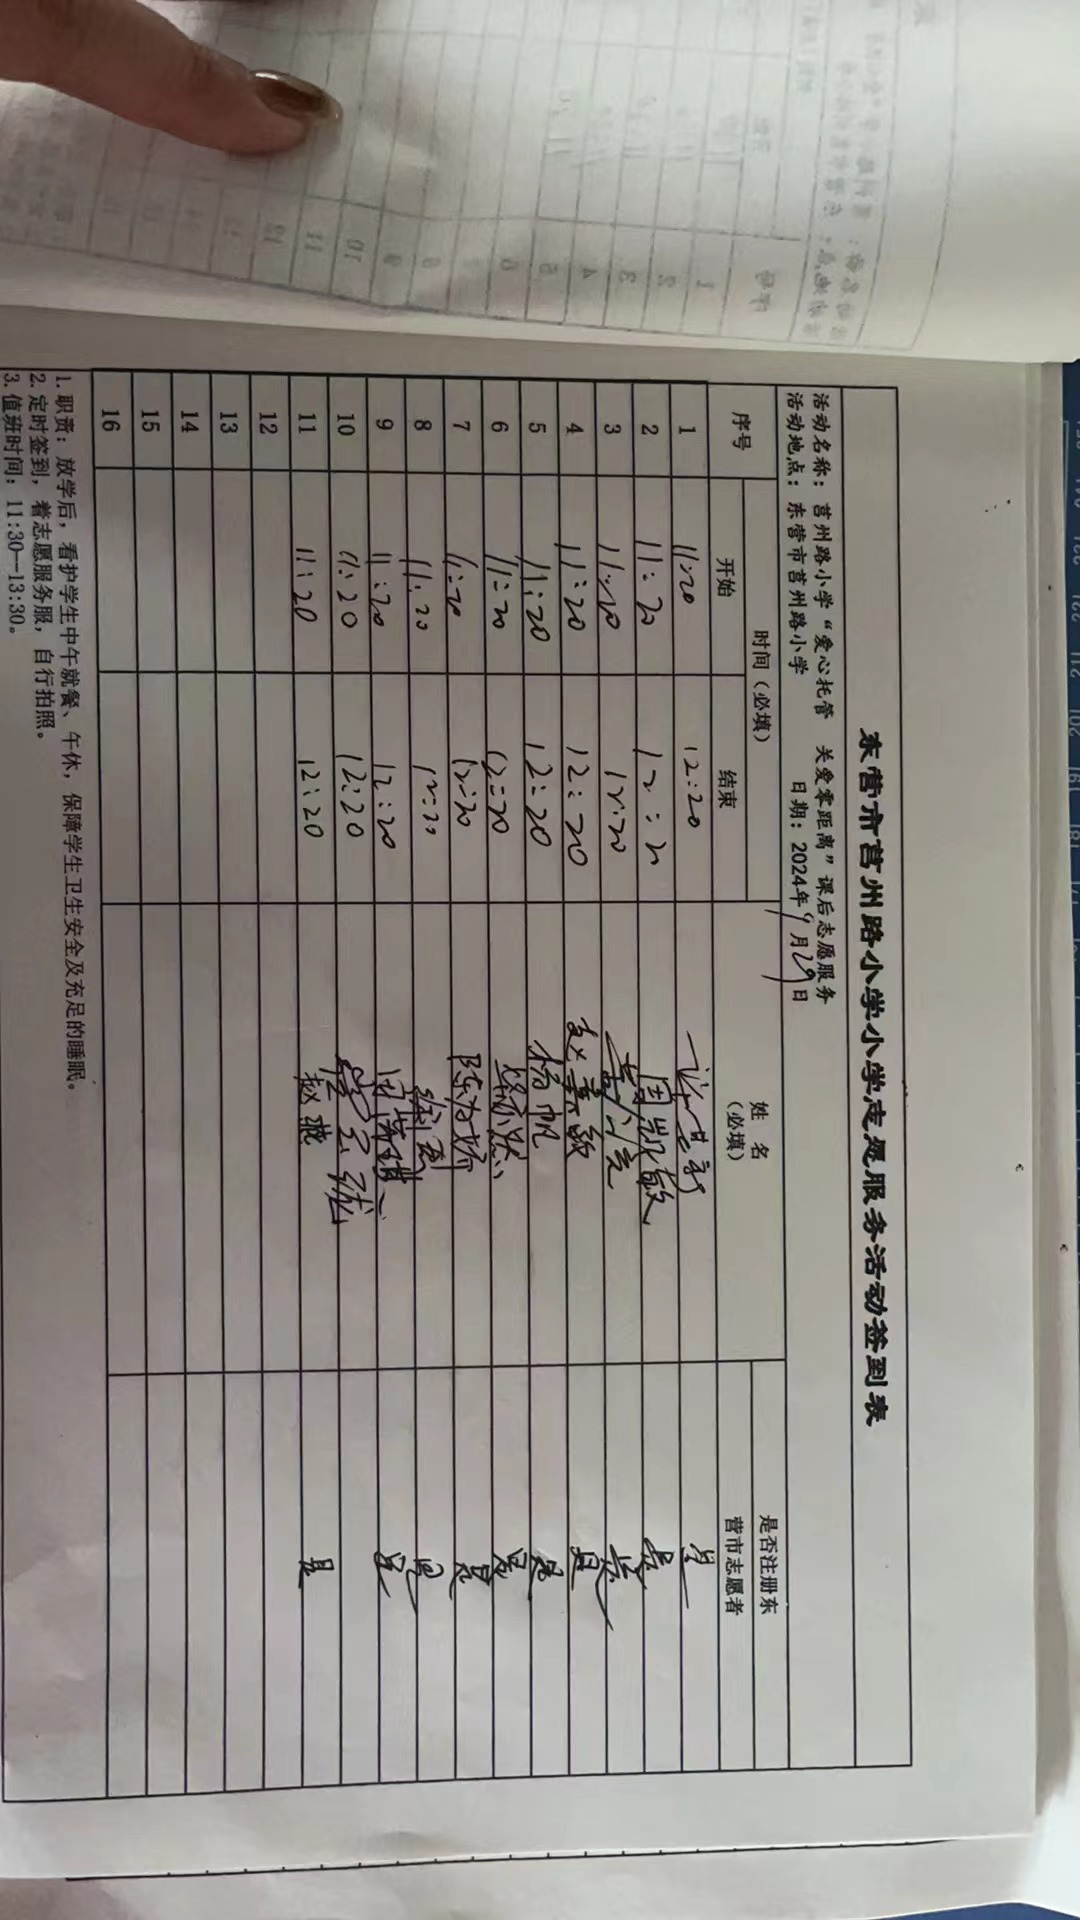 东营市莒州路小学小学志愿服务活动签到表
活动名称：莒州路小学“爱心托管 关爱零距离”课后志愿服务
活动地点：东营市莒州路小学 日期：2024年9月29日
序号 时间（必填） 姓 名（必填） 是否注册东营市志愿者
开始 结束
1 11:20 12:20 是
2 11:20 12:20 周凯敏 是
3 11:20 12:20 是
4 11:20 12:20 赵美敏 是
5 11:20 12:20 杨帆 是
6 11:20 12:20 是
7 11:20 12:20 陈为娇 是
8 11:20 12:20 是
9 11:20 12:20 是
10 11:20 12:20
11 11:20 12:20 赵璐 是
12
13
14
15
16
1.职责：放学后，看护学生中午就餐、午休，保障学生卫生安全及充足的睡眠。
2.定时签到，着志愿服务服，自行拍照。
3.值班时间：11:30—13:30。